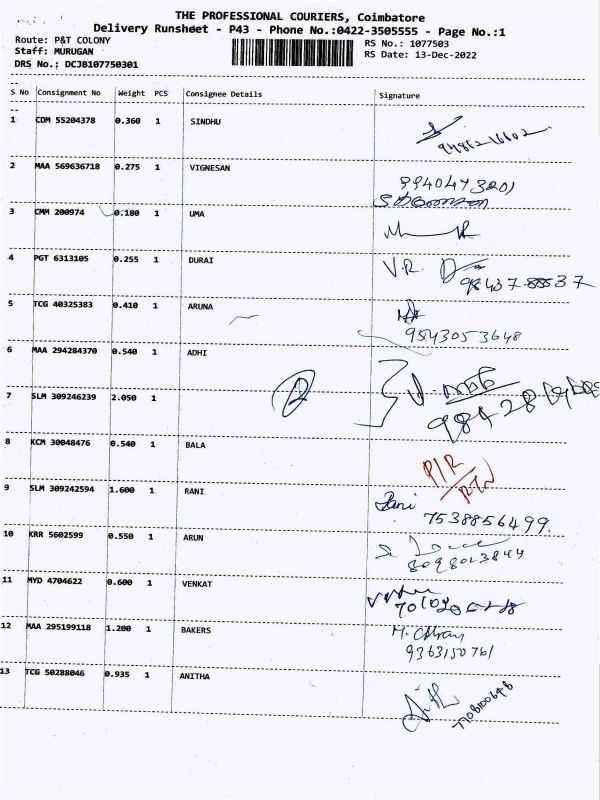 THE PROFESSIONAL COURIERS, Coimbatore
Delivery Runsheet - P43 - Phone No.:0422-3505555 - Page No.:1
Route: P&T COLONY
RS No.: 1077503
Staff: MURUGAN
RS Date: 13-Dec-2022
DRS No.: DCJB107750301
S No Consignment No Weight PCS Consignee Details Signature
1 CDM 55204378 0.360 1 SINDHU
2 MAA 569636718 0.275 1 VIGNESAN
9940473201
3 CMM 200974 0.180 1 UMA
4 PGT 6313105 0.255 1 DURAI V.R.
98437-88537
5 TCG 40325383 0.410 1 ARUNA
9543053648
6 MAA 294284370 0.540 1 ADHI
7 SLM 309246239 2.050 1
8 KCM 30048476 0.540 1 BALA
P/R
9 SLM 309242594 1.600 1 RANI Rani
7538856499
10 KRR 5602599 0.550 1 ARUN
8098023844
11 MYD 4704622 0.600 1 VENKAT
12 MAA 295199118 1.200 1 BAKERS
9363150761
13 TCG 50288046 0.935 1 ANITHA
7708100648